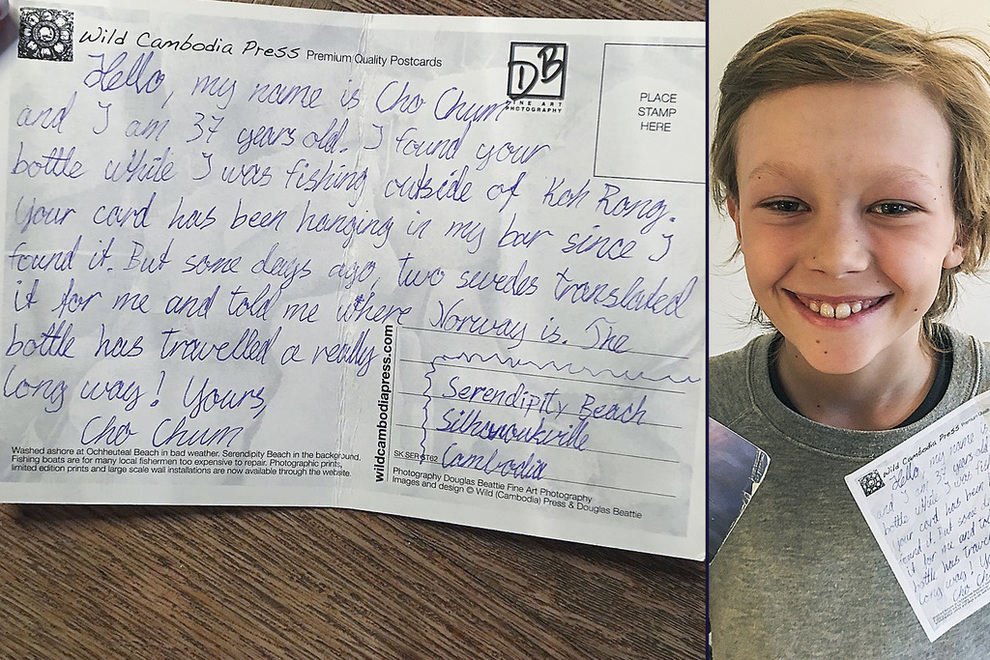 Wild Cambodia Press Premium Quality Postcards
DB
FINE ART
PHOTOGRAPHY
PLACE
STAMP
HERE
Hello, my name is Cho Chum
and I am 37 years old. I found your
bottle while I was fishing outside of Koh Rong.
Your card has been hanging in my bar since I
found it. But some days ago, two swedes translated
it for me and told me where Norway is. The
bottle has travelled a really
long way! Yours,
Cho Chum
Serendipity Beach
Silhanoukville
Cambodia
wildcambodiapress.com
Washed ashore at Ochheuteal Beach in bad weather. Serendipity Beach in the background.
Fishing boats are for many local fishermen too expensive to repair. Photographic prints,
limited edition prints and large scale wall installations are now available through the website.
Photography Douglas Beattie Fine Art Photography
Images and design © Wild (Cambodia) Press & Douglas Beattie
Wild Cambodia Press
Hello, my name is
and I am 37 years old
bottle while I was fish
your card has been
found it. But some d
it for me and to
bottle has trave
long way! Yo
Cho Ch